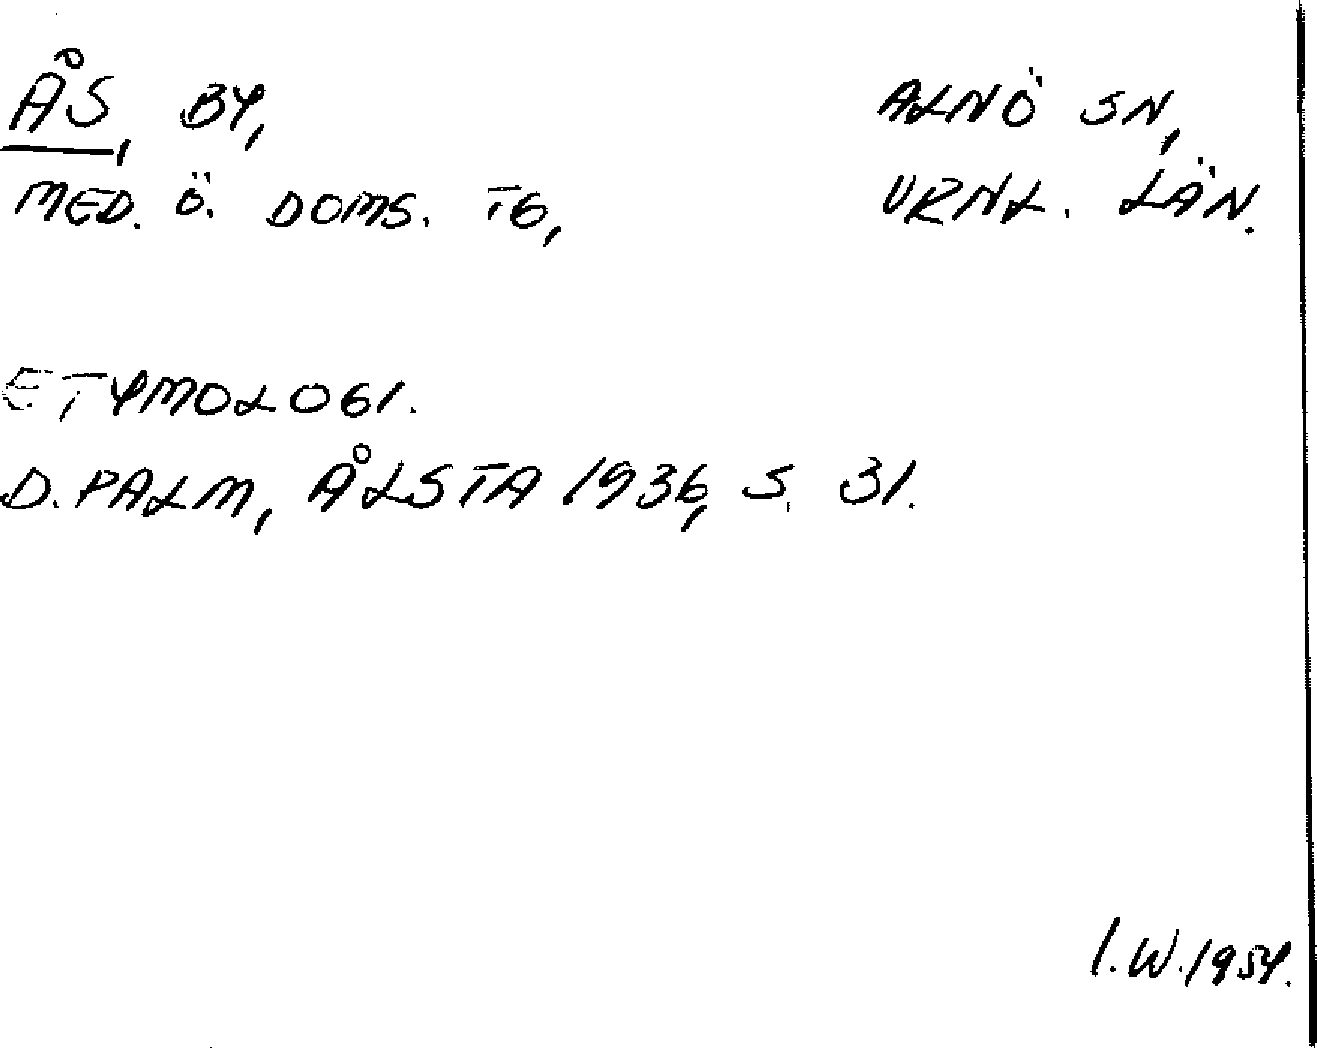 ÅS, BY, ALNÖ SN,
MED. Ö. DOMS. TG, VRNL. LÄN.
ETYMOLOGI.
D. PALM, ÅLSTA 1936, S. 31.
I.W. 1954.